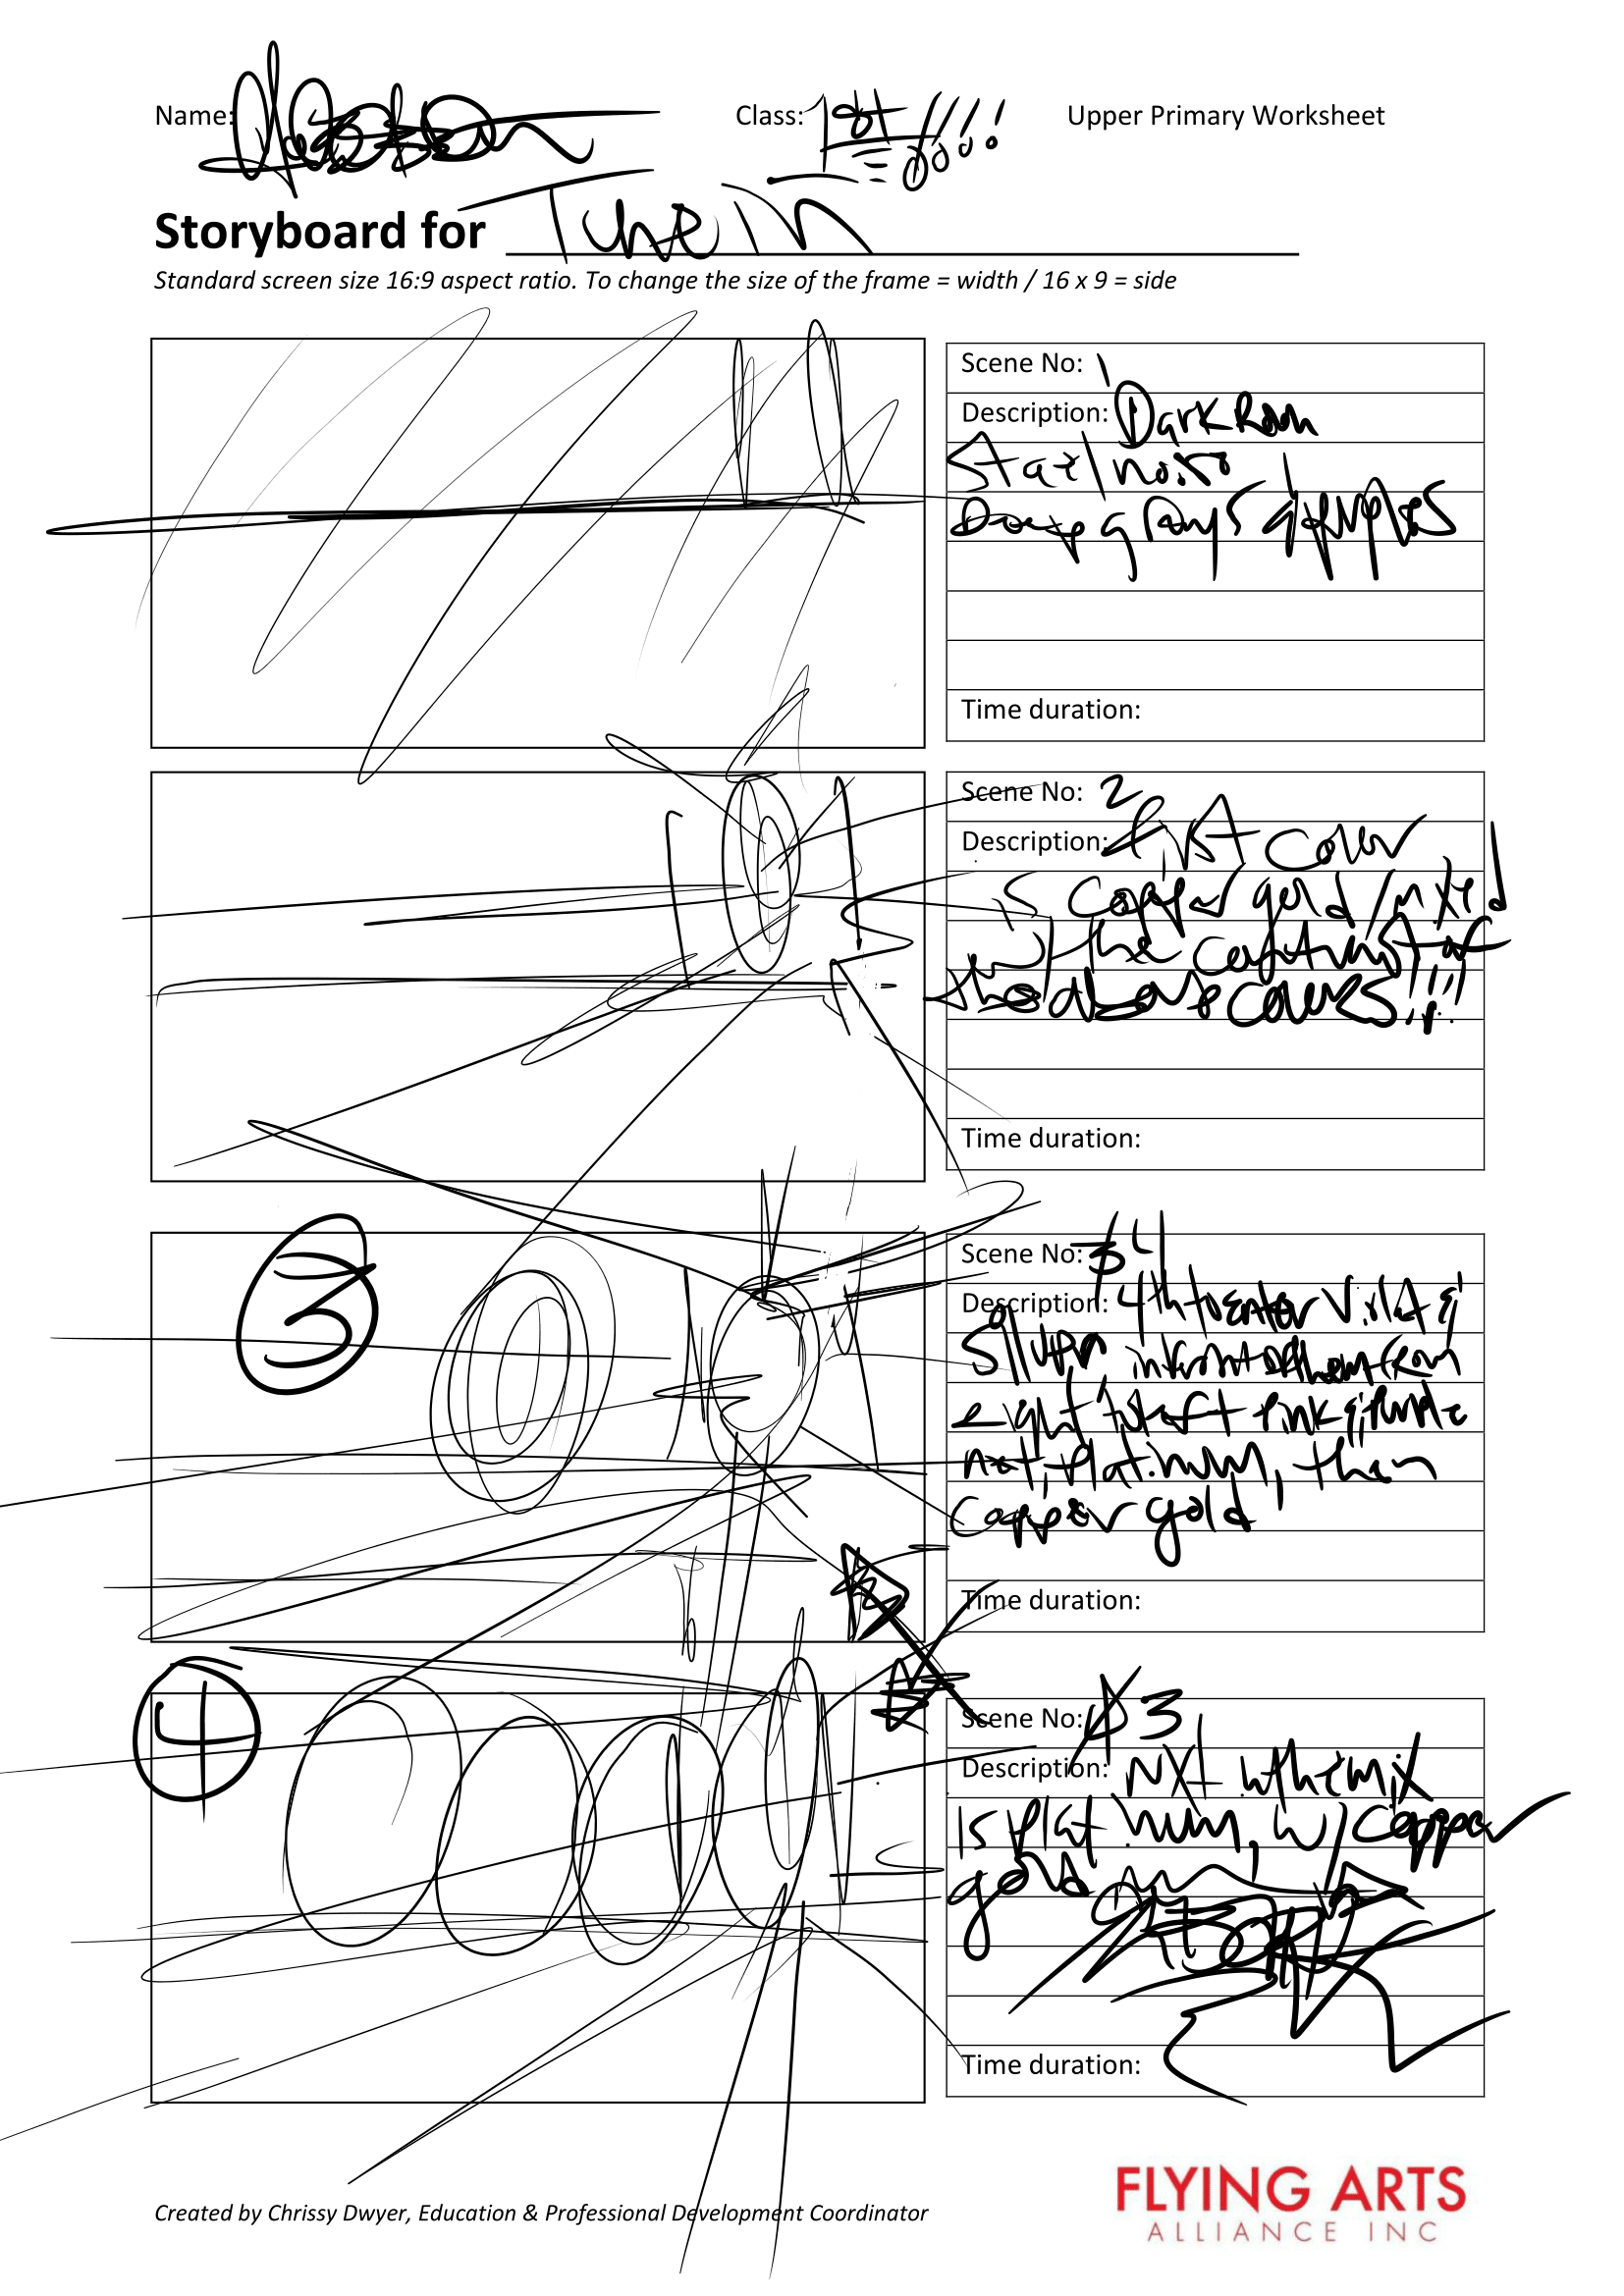 Name:
Class: 1st !!!!
Upper Primary Worksheet
Storyboard for The In
Standard screen size 16:9 aspect ratio. To change the size of the frame = width / 16 x 9 = side
Scene No: 1
Description: Dark Room
Deep grays & purples
Time duration:
Scene No: 2
Description: first color
is copper gold / mixd
w/ the
the above colors!!!!
Time duration:
3
Scene No: 4
Description: 4th to enter Violet &
Silver in front of them from
right to left pink & purple
nxt, platinum, then
copper gold
Time duration:
4
Scene No: 3
Description: Nxt in the mix
is platinum, w/ copper
gold
Time duration:
Created by Chrissy Dwyer, Education & Professional Development Coordinator
FLYING ARTS
ALLIANCE INC